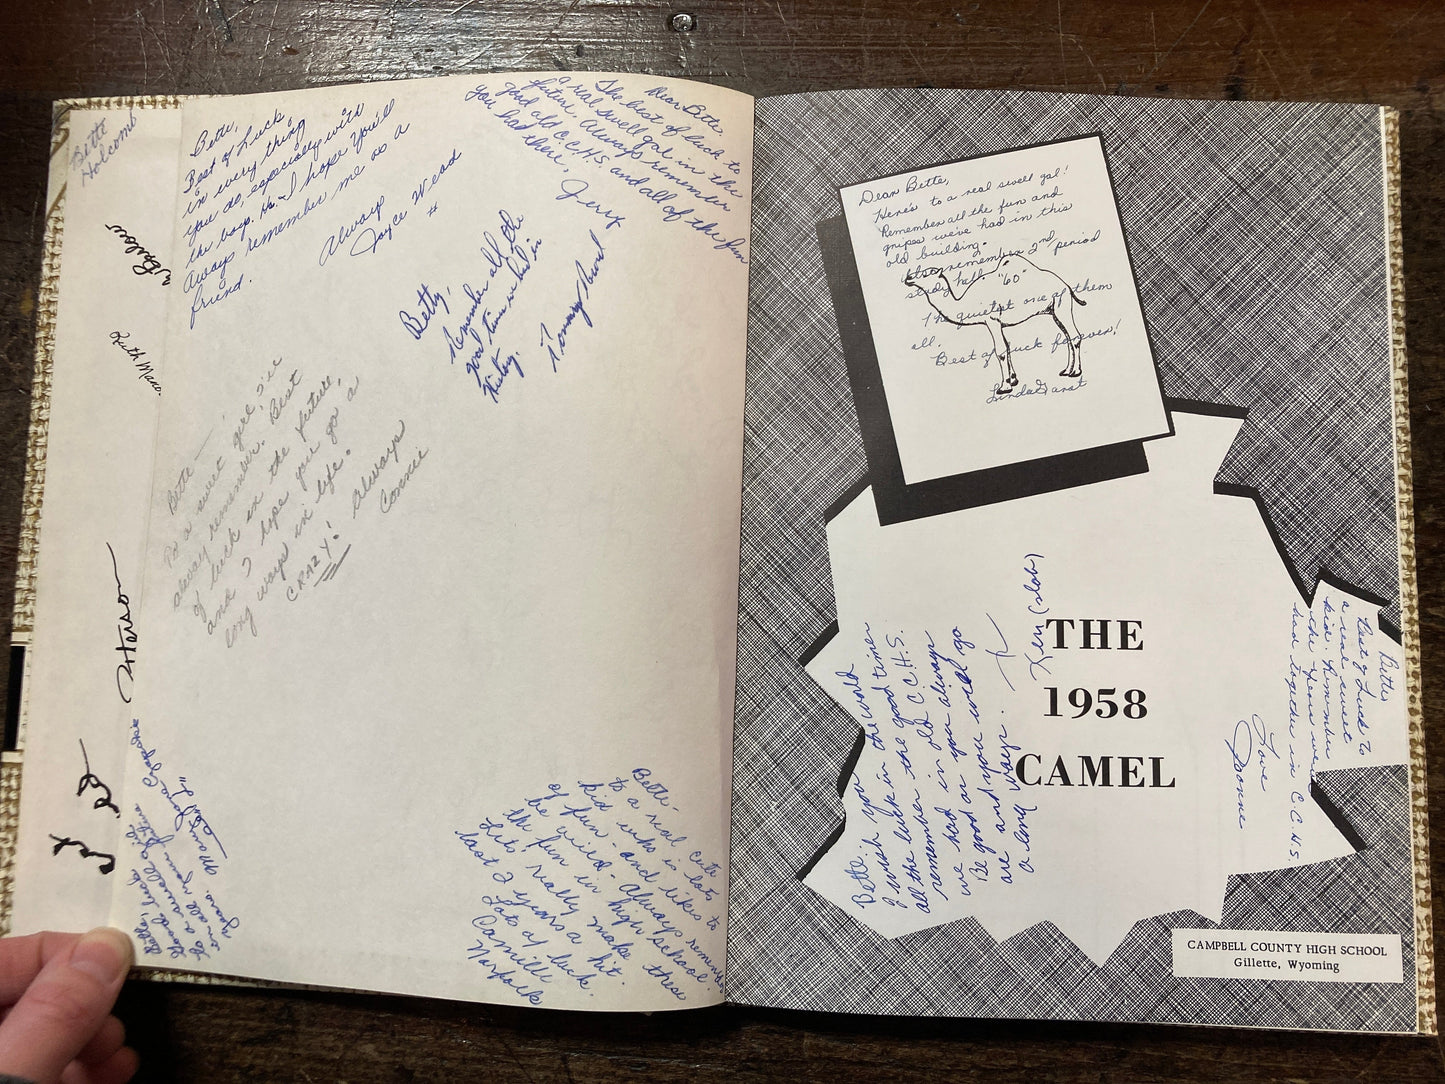 Bette
Holcomb
Bette,
Best of Luck,
in every thing
you do, especially with
the boys. Ha. I hope you'll
always remember me as a
friend.
Always
Joyce Wead
Dear Bette
The best of luck to
a real swell gal in the
future. Always remember
good old C.C.H.S. and all of the fun
you had there.
Jerry
Betty,
Remember all of the
good times we had in
History.
Tommy
Keith
Bette —
To a sweet girl I'll
alway remember. Best
of luck in the future,
and I hope you go a
long ways in life.
CRAZY!
Always
Connie
Bette,
Good luck
to a swell girl
in all your future
years.
Mary
Bette-
to a real cute
kid who is lots
of fun - and likes to
be wild - Always remember
the fun in high school.
Lets really make these
last 2 years a hit.
Lots of luck.
Camille
Norfolk
Dear Bette,
Here's to a real swell gal!
Remember all the fun and
gripes we've had in this
old building.
Also remember 2nd period
study hall. "60"
The quietest one of them
all.
Best of luck forever!
Linda Garst
THE
1958
CAMEL
Bette:
I wish you in the world
all the luck in the good times
remember in old C.C.H.S.
we had in you always
Be good as you will go
are and you
a long ways.
Ken (slob)
Bette
Best of Luck to
a real sweet
kid. Remember
the years we've
had together in C.C.H.S.
Love
Joanne
CAMPBELL COUNTY HIGH SCHOOL
Gillette, Wyoming